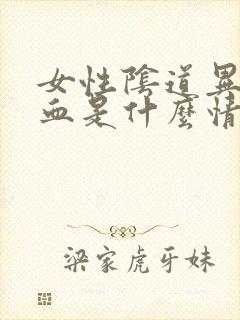 女性陰道異
血是什麼情
梁家虎牙妹